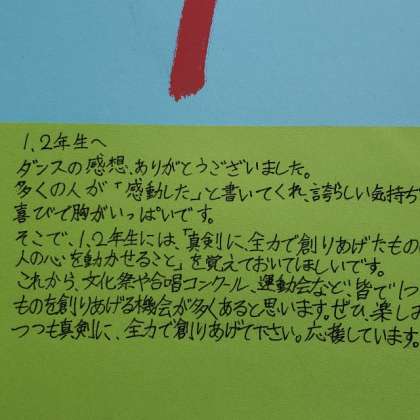 1、2年生へ
ダンスの感想、ありがとうございました。
多くの人が「感動した」と書いてくれ、誇らしい気持ち
喜びで胸がいっぱいです。
そこで、1、2年生には、「真剣に、全力で創りあげたもの
人の心を動かせること」を覚えておいてほしいです。
これから、文化祭や合唱コンクール、運動会など、皆で1つ
ものを創りあげる機会が多くあると思います。ぜひ、楽し
つつも真剣に、全力で創りあげて下さい。応援しています。